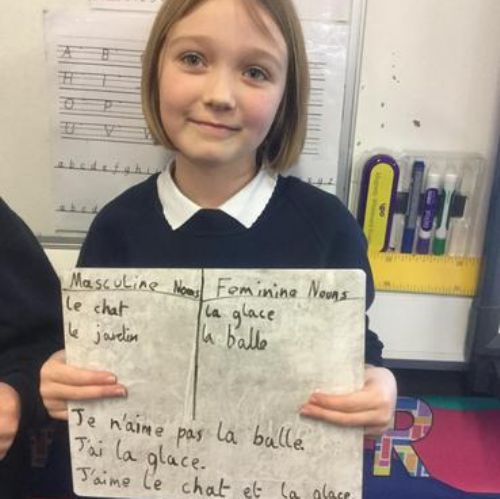 A B
H I
O P
U V W
a b c d e f g h i
a b c d e
Masculine Nouns Feminine Nouns
le chat la glace
le jardin la balle
Je n'aime pas la balle.
J'ai la glace.
J'aime le chat et la glace
R